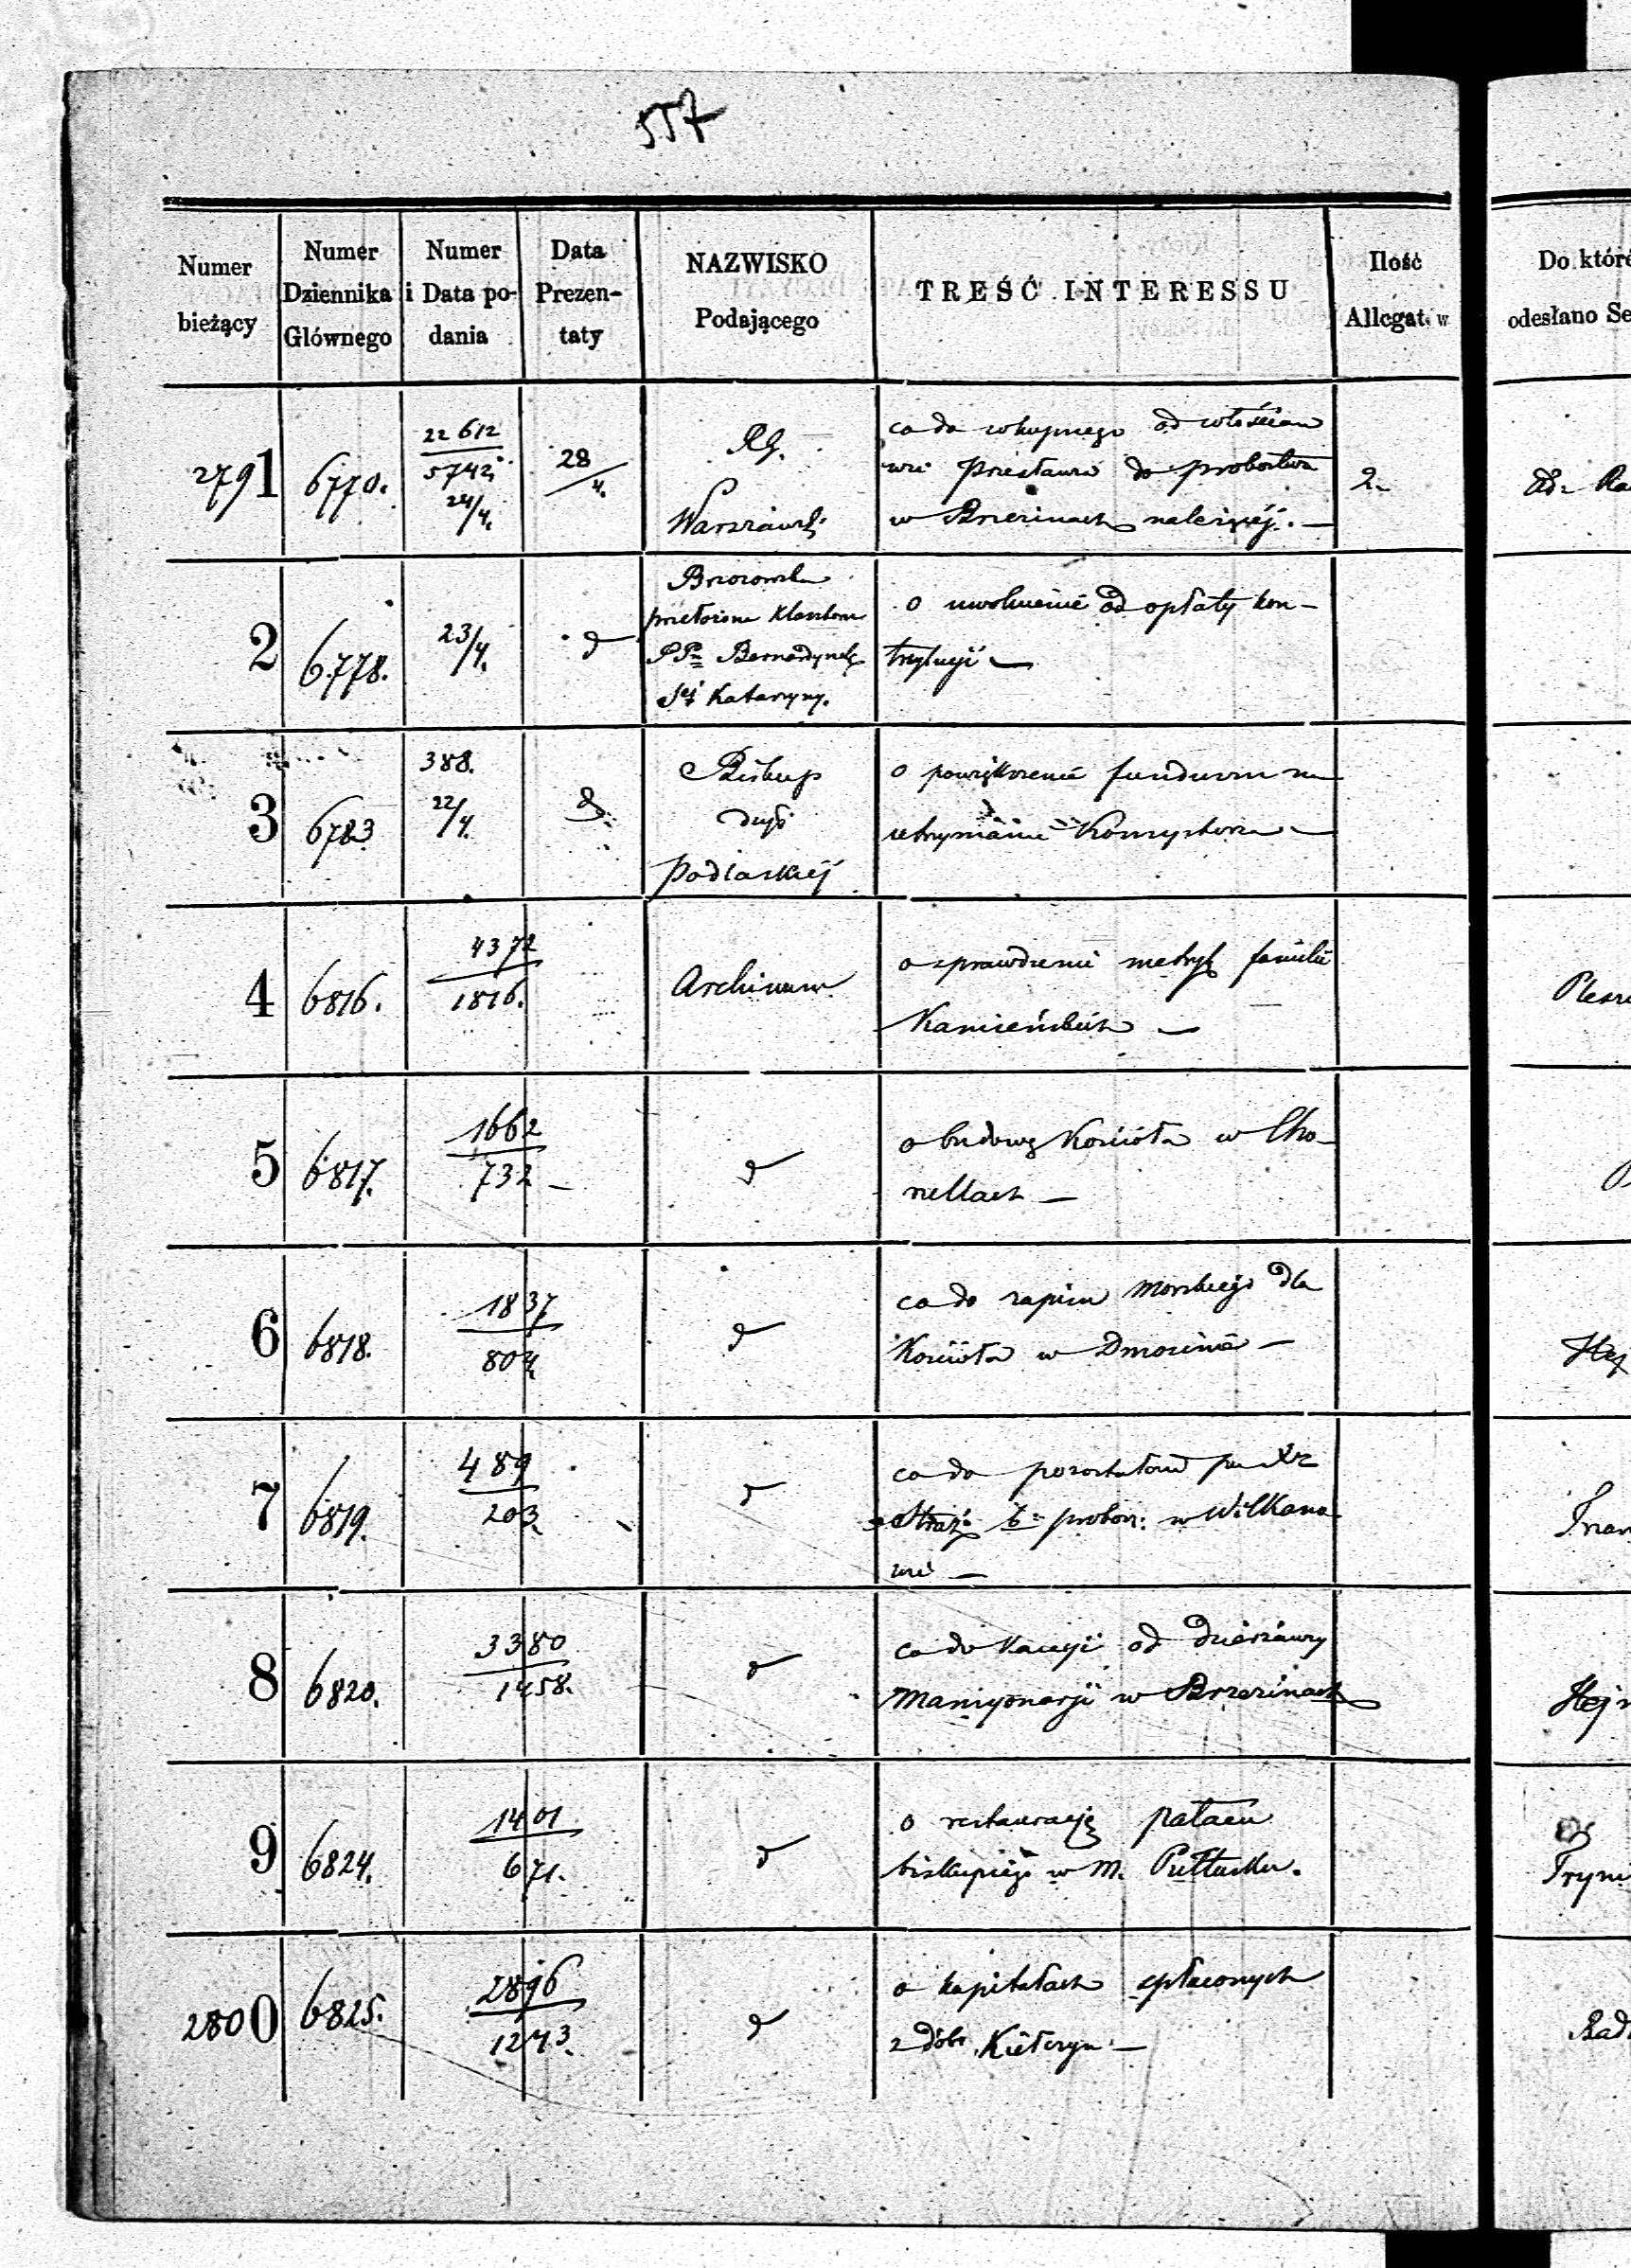 557
Numer bieżący | Numer Dziennika Głównego | Numer i Data podania | Data Prezentaty | NAZWISKO Podającego | TREŚĆ INTERESSU | Ilość Allegat. w | Do któré odesłano Se
2791 | 6770. | 22612 / 5742 24/4. | 28/4. | RG. Warszawsk: | co do wkupnego od włościan
wsi do probostwa
w Brzezinach należącéj. — | 2.
2 | 6778. | 23/4. | d | Brzozowska przełożona Klasztoru PPn Bernardynek Stéj Katarzyny. | o uwolnienie od opłaty kon-
trybucji —
3 | 6783 | 388. 22/4. | d | Biskup Podlaskiéj | o powiększenie funduszu na
utrzymanie Konsystorza —
4 | 6816. | 4372 / 1816. | Archiwum | o sprawdzenie metryk familii
Kamieńskich —
5 | 6817. | 1662 / 732 — | d | o budowę Kościoła w Cho-
rzellach —
6 | 6818. | 1837 / 804 | d | co do zapisu Morskiego dla
Kościoła w Dmosinie —
7 | 6819. | 489 / 203. | d | co do pozostałości po Xz
b. probosz: w Wilkano
wie —
8 | 6820. | 3380 / 1458. | d | co do Kaucji od dzierżawy
Mansyonarji w Brzezinach
9 | 6824. | 1401 / 671. | d | o restauracją pałacu
biskupiego w M. Pułtusku.
2800 | 6825. | 2896 / 1243. | d | o kapitałach spłaconych
z dóbr —